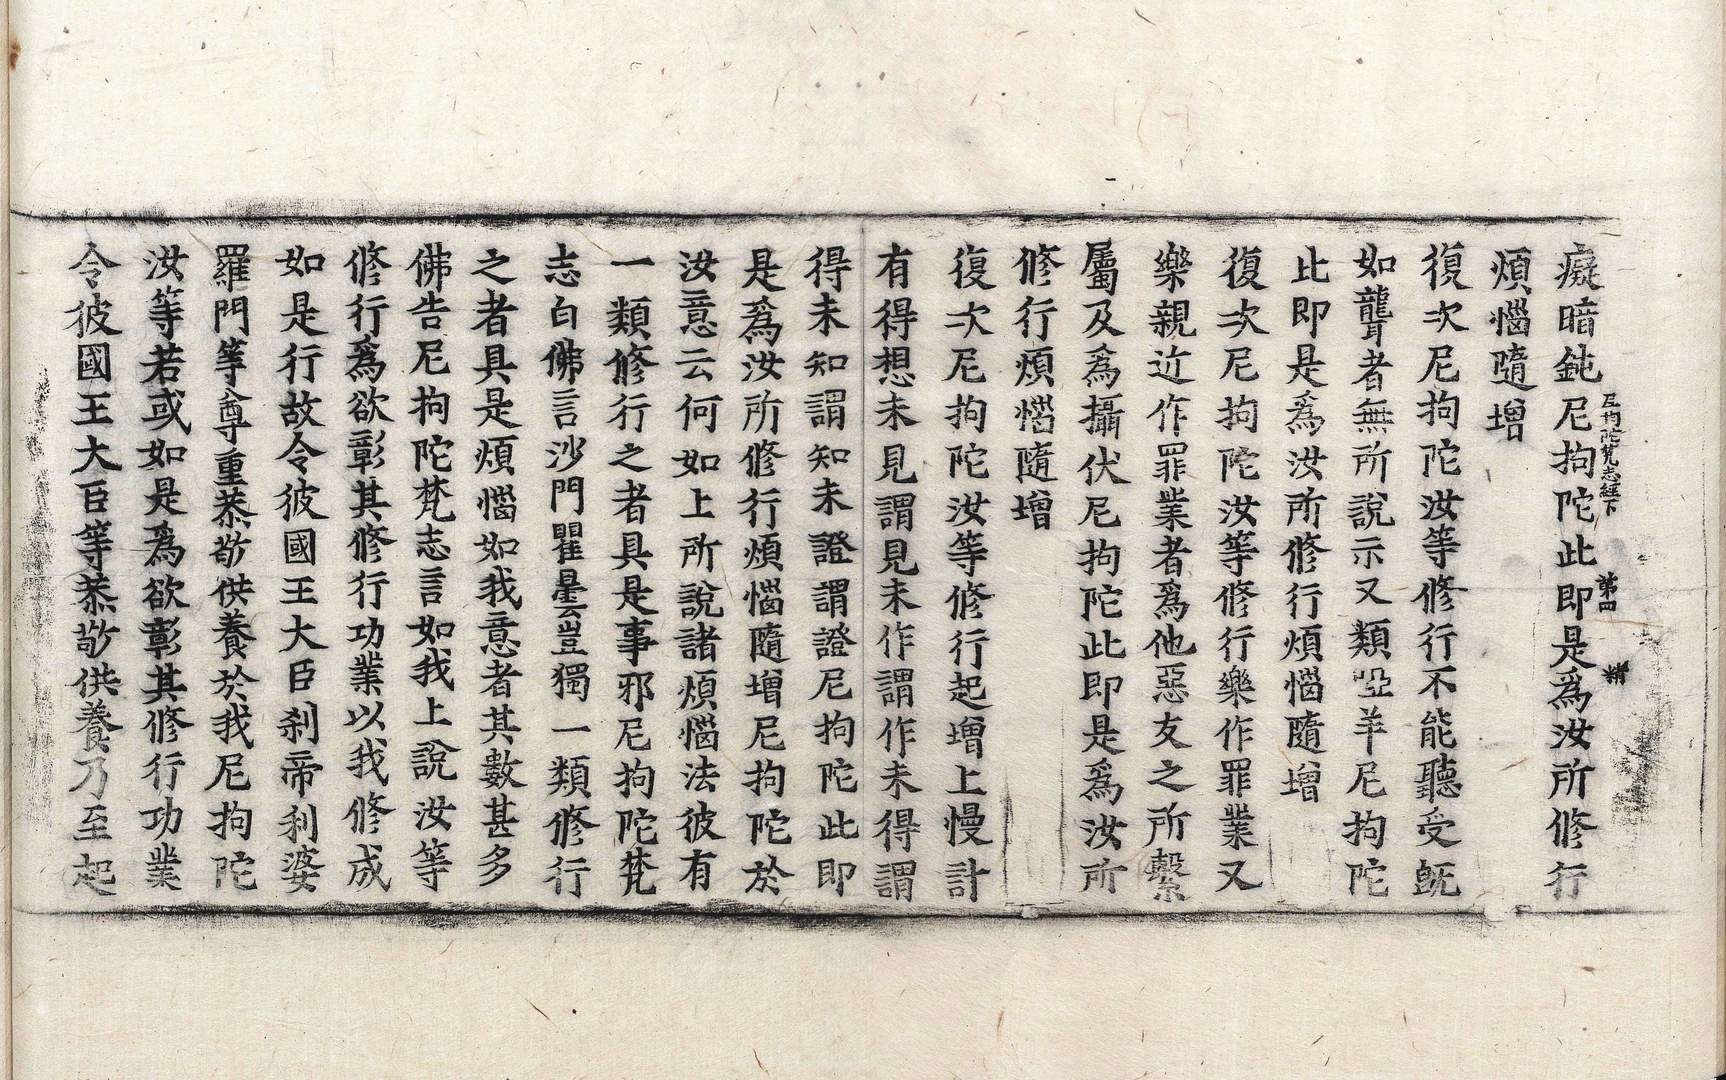 癡暗鈍尼拘陀此即是爲汝所修行
尼拘陀梵志經下 第四 精
煩惱隨增
復次尼拘陀汝等修行不能聽受旣
如聾者無所說示又類啞羊尼拘陀
此即是爲汝所修行煩惱隨增
復次尼拘陀汝等修行樂作罪業又
樂親近作罪業者爲他惡友之所繫
屬及爲攝伏尼拘陀此即是爲汝所
修行煩惱隨增
復次尼拘陀汝等修行起增上慢計
有得想未見謂見未作謂作未得謂
得未知謂知未證謂證尼拘陀此即
是爲汝所修行煩惱隨增尼拘陀於
汝意云何如上所說諸煩惱法彼有
一類修行之者具是事邪尼拘陀梵
志白佛言沙門瞿曇豈獨一類修行
之者具是煩惱如我意者其數甚多
佛告尼拘陀梵志言如我上說汝等
修行爲欲彰其修行功業以我修成
如是行故令彼國王大臣刹帝利婆
羅門等尊重恭敬供養於我尼拘陀
汝等若或如是爲欲彰其修行功業
令彼國王大臣等恭敬供養乃至起